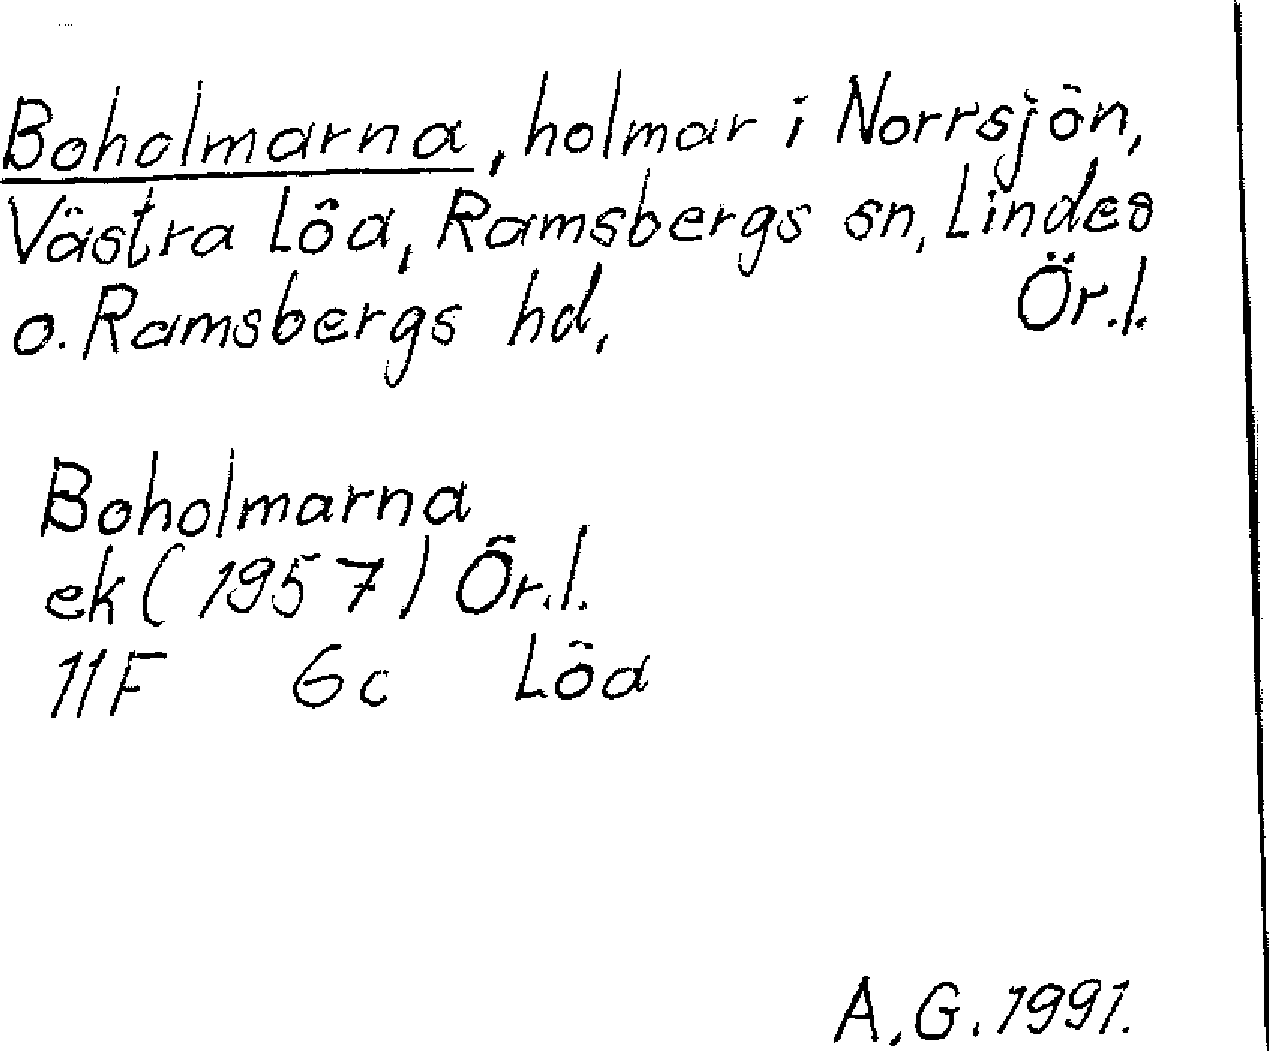 Boholmarna, holmar i Norrsjön,
Västra Löa, Ramsbergs sn, Lindes
o. Ramsbergs hd, Ör.l.
Boholmarna
ek (1957) Ör.l.
11F 6c Löa
A.G. 1991.